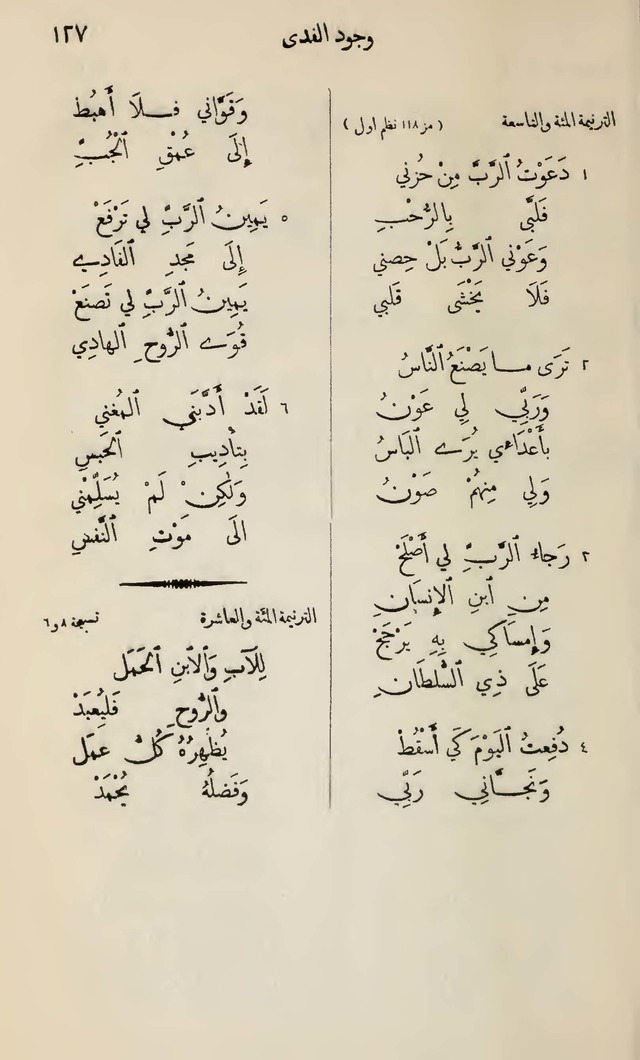 وجود الفدى ١٢٧
الترنيمة المئة والتاسعة (مز ١١٨ نظم اول)
١ دَعَوْتُ ٱلرَّبَّ مِنْ حُزْنِي
فَلَبَّى بِٱلرُّحْبِ
وَعَوْنِي ٱلرَّبُّ بَلْ حِصنِي
فَلَا يَخْشَى قَلبِي
٢ تَرَى مــا يَصْنَعُ ٱلنَّاسُ
وَرَبِّي لِي عَوْنُ
بأَعْدَاءِي يُرَے ٱلبَاسُ
وَلِي مِنهُمْ صَوْنُ
٣ رَجاءُ ٱلرَّبِّ لِي أَصْلَحْ
مِنِ ٱبنِ ٱلإِنسَانِ
وَإِمسَاكِي بِهِ يَرْجَحْ
عَلَى ذِي ٱلسُّلطَانِ
٤ دُفِعتُ ٱليَوْمَ كَي أَسْقُطْ
وَنَجَّانِي رَبِّي
وَقَوَّانِي فــلَا أَهبُط
إِلَى عُمْقِ ٱلْجُبِّ
٥ يَمِينُ ٱلرَّبِّ لِي تَرْفَعْ
إِلَى مَجدِ ٱلفَادِي
يَمِينُ ٱلرَّبِّ لِي تَصنَعْ
قُوَے ٱلرُّوحِ ٱلهَادِي
٦ لَقَدْ أَدَّبَنِي ٱلمُغنِي
بِتأْدِيبِ ٱلحَبسِ
وَلٰكِنْ لَمْ يُسَلِّمْنِي
الَى مَوْتِ ٱلنَّفسِ
الترنيمة المئة والعاشرة تسبحة ٨ و٦
لِلآبِ وَٱلٱبنِ ٱلحَمَل
وٱلرُّوحِ فَليُعبَدْ
يُظهِرُهُ كُلُّ عمَل
وَفَضلُهُ يُحْمَدْ